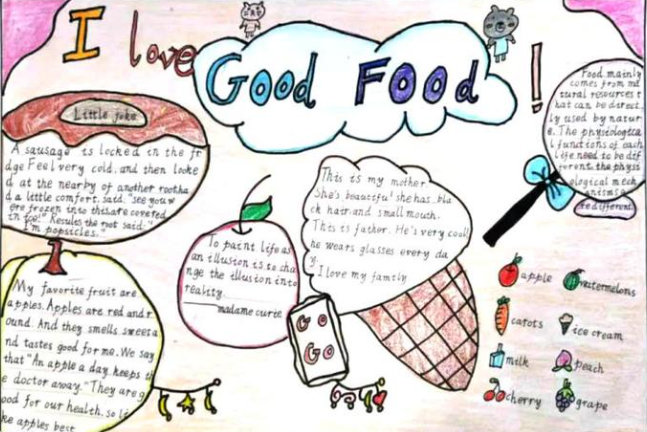 I love
Good Food !
Little joke
A sausage is locked in the fr
dge Feel very cold, and then looke
d at the nearby of another
d a little comfort, said: "see you w
ere frozen into this, are covered
in ice!" Resules the root said: "
I'm popsicles."
My favorite fruit are
apples. Apples are red and r
ound. And they smells sweet a
nd tastes good for me. We say
that "An apple a day keeps th
e doctor away." They are g
ood for our health, so li
ke apples best
To paint life as
an illusion is to cha
nge the illusion into
reality.
madame curie
This is my mother.
She's beautiful she has bla
ck hair and small mouth.
This is father. He's very cool!
he wears glasses every da
y.
I love my family
GO
GO
Food mainly
comes from na
tural resources t
hat can be direct
ly used by natur
e. The physiologica
l functions of each
life need to be dif
ferent. the physi
ological mech
anisms
re different.
apple
watermelons
carots
ice cream
milk
peach
cherry
grape